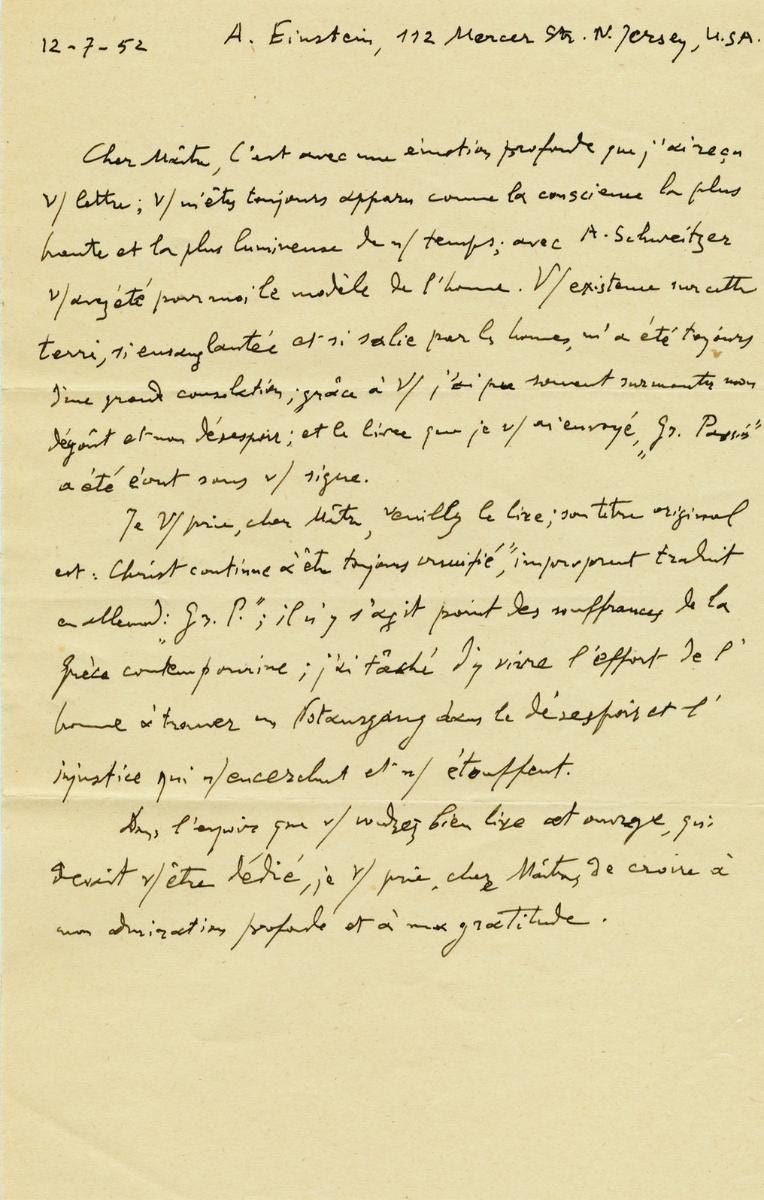 12-7-52 A. Einstein, 112 Mercer Str. N. Jersey, U.S.A.
Cher Maître, C'est avec une émotion profonde que j'ai reçu
v/ lettre; v/ m'êtes toujours apparu comme la conscience la plus
haute et la plus lumineuse de n/ temps; avec A. Schweitzer
v/ avez été pour moi le modèle de l'homme. V/ existence sur cette
terre, si ensanglantée et si salie par les hommes, m'a été toujours
d'une grande consolation; grâce à V/ j'ai pu souvent surmonter mon
dégoût et mon désespoir; et le livre que je v/ ai envoyé, „Gr. Passion"
a été écrit sous v/ signe.
Je V/ prie, cher Maître, veuillez le lire; son titre original
est: Christ continue à être toujours crucifié", improprement traduit
en allemand: „Gr. P."; il n'y s'agit point des souffrances de la
Grèce contemporaine; j'ai tâché d'y vivre l'effort de l'
homme à trouver un Notausgang dans le désespoir et l'
injustice qui n/ encerclent et n/ étouffent.
Dans l'espoir que v/ voudrez bien lire cet ouvrage, qui
devait v/ être dédié, je V/ prie, cher Maître, de croire à
mon admiration profonde et à ma gratitude.